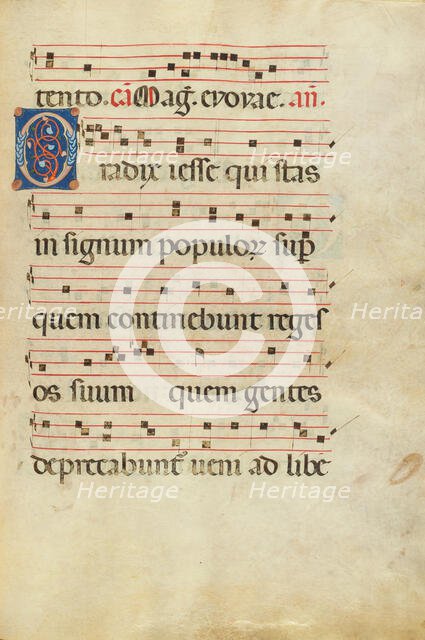 tento. cā Mag̃. evovae. añ.
O radix iesse qui stas
in signum populoꝝ sup̄
quem continebunt reges
os suum quem gentes
deprecabunt᷑ veni ad libē
Heritage
Heritage
Heritage
Heritage
Heritage
Heritage